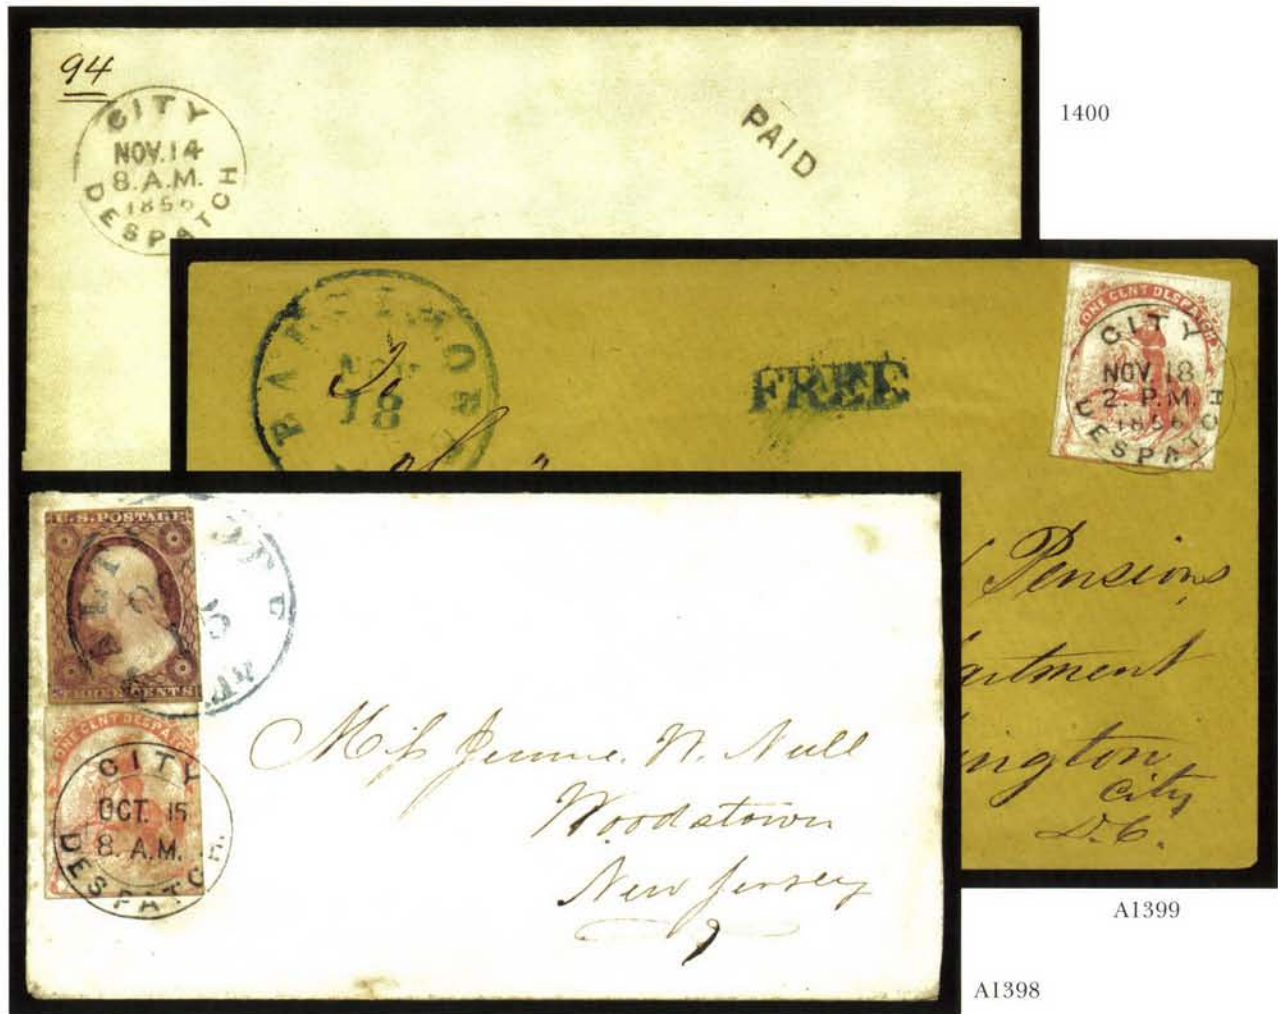 94
CITY
NOV. 14
8. A.M.
1856
DESPATCH
PAID
1400
BALTIMORE
NOV
18
FREE
ONE CENT DESPATCH
CITY
NOV. 18
2. P.M.
1856
DESPATCH
To
Pensions
City
D.C.
A1399
U.S. POSTAGE
THREE CENTS
OCT
15
ONE CENT DESPATCH
CITY
OCT. 15
8. A.M.
DESPATCH
Miss Jennie. N. Null
Woodstown
New Jersey
A1398